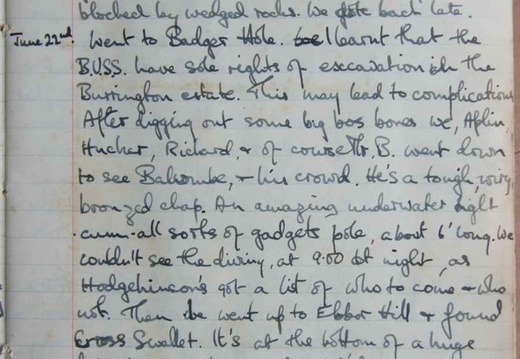 blocked by wedged rocks. We got back late.
June 22nd. Went to Badger Hole. I learnt that the
B.U.S.S. have sole rights of excavation in the
Burrington estate. This may lead to complications
After digging out some big bos bones we, Aplin,
Hucker, Richard, & of course Mr. B. went down
to see Balcombe, & his crowd. He's a tough, wiry,
bronzed chap. An amazing underwater light
-cum-all sorts of gadgets pole, about 6' long. We
couldn't see the diving, at 9.00 at night, as
Hodgkinson's got a list of who to come & who
not. Then we went up to Ebbor Hill & found
Cross Swallet. It's at the bottom of a huge